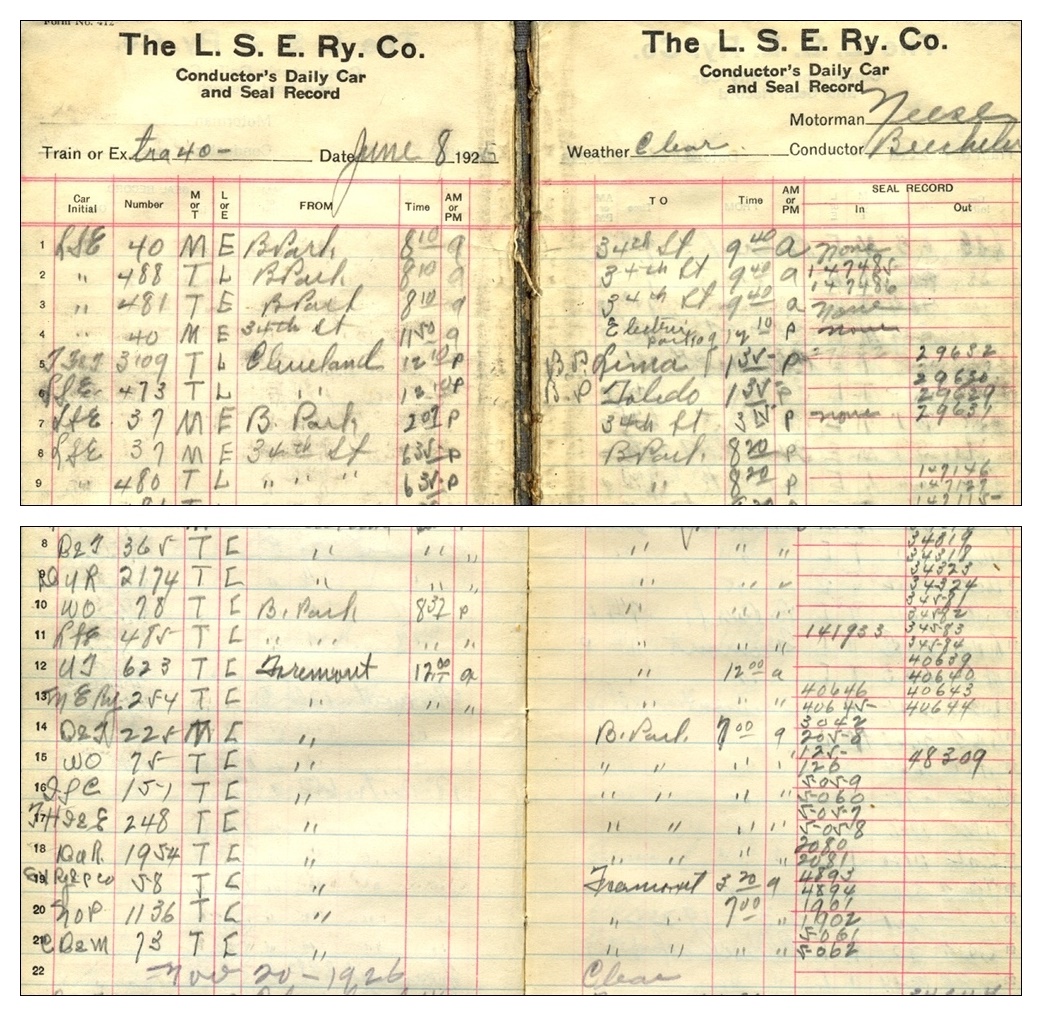 Form No. 412
The L. S. E. Ry. Co.
Conductor's Daily Car
and Seal Record
Train or Ex. tra 40 - Date June 8 192
Car Initial Number M or T L or E FROM Time AM or PM
1 LSE 40 M E B Park 8 10 a
2 " 488 T L B Park 8 10 a
3 " 481 T E B Park 8 10 a
4 " 40 M E 34th St 11 50 a
5 3109 T L Cleveland 12 10 P
6 LSE 473 T L " " 12 10 P
7 LSE 37 M E B. Park 2 07 P
8 LSE 37 M E 34th St 6 35 P
9 " 480 T L " " " 6 35 P
The L. S. E. Ry. Co.
Conductor's Daily Car
and Seal Record
Motorman Neese
Weather Clear Conductor
TO Time AM or PM SEAL RECORD
In Out
34th St 9 40 A none
34th St 9 40 a 147485
147486
34th St 9 40 a none
Electric 12 10 P none
B.P. Lima 1 35 P 29632
29630
B.P Toledo 1 35 P 29629
29631
34th St 3 15 P none
B Park 8 20 P
" 8 20 P 147146
147127
147115
8 365 T L " " " " " " 34819
34318
9 2174 T L " " " " " 34323
34324
10 WO 78 T L B. Park 8 37 P " " " 34581
34582
11 LSE 485 T L " " " " " " " 141933 34583
34584
12 UT 623 T L Fremont 12 00 a " 12 00 a 40639
40640
13 254 T L " " " " " " 40646 40643
40645 40644
14 225 M L " B. Park 7 00 a 3042
2058
15 WO 75 T L " " " " " 125 48309
126
16 151 T L " " " " " 5059
5060
17 248 T L " " " " " 5057
5058
18 1954 T L " " " " " 2080
2081
19 58 T L " Fremont 3 20 a 4893
4894
20 1136 T L " " 7 00 " 1901
1902
21 73 T L " " " " " 5061
5062
22 Nov 20 - 1926 Clear